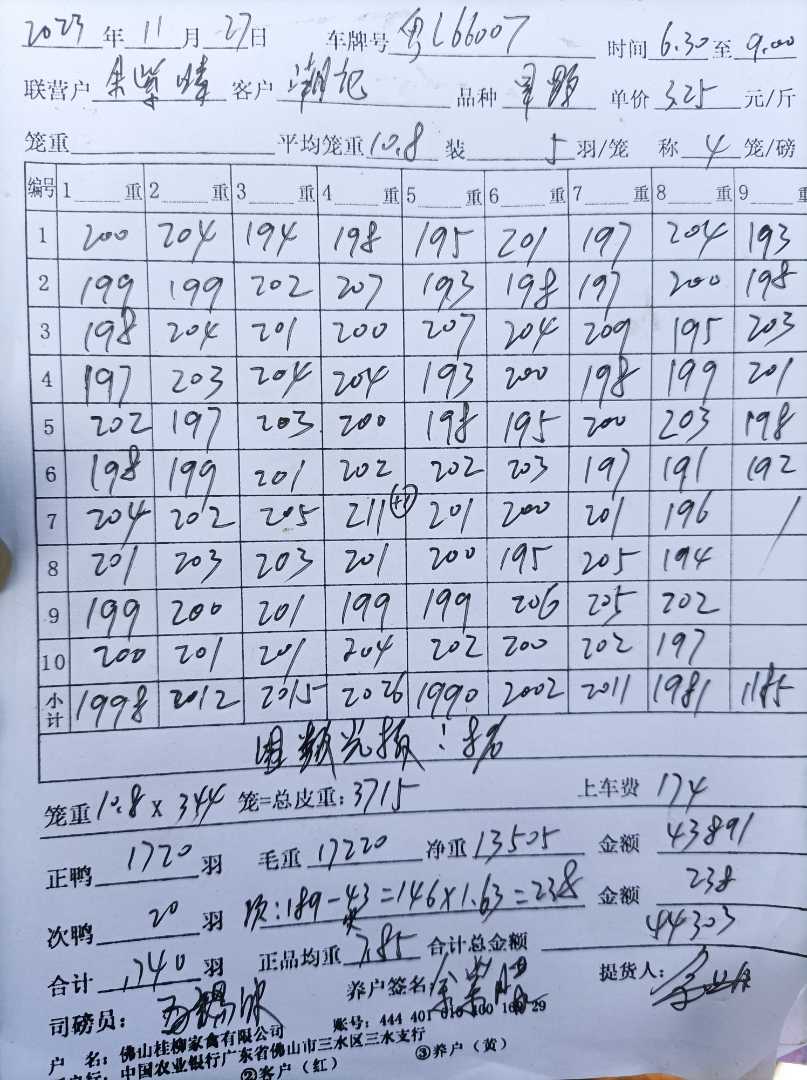 2023 年 11 月 27 日 车牌号 粤L66007 时间 6.30 至 9.00
联营户 客户 潮记 品种 单价 3.25 元/斤
笼重 平均笼重 10.8 装 5 羽/笼 称 4 笼/磅
编号 1 重 2 重 3 重 4 重 5 重 6 重 7 重 8 重 9 重
1 200 204 194 198 195 201 197 204 193
2 199 199 202 207 193 198 197 200 198
3 198 204 201 200 207 204 209 195 203
4 197 203 204 204 193 200 198 199 201
5 202 197 203 200 198 195 200 203 198
6 198 199 201 202 202 203 197 191 192
7 204 202 205 211 +1 201 200 201 196 /
8 201 203 203 201 200 195 205 194
9 199 200 201 199 199 206 205 202
10 200 201 201 204 202 200 202 197
小计 1998 2012 2015 2026 1990 2002 2011 1981 1185
笼重 10.8 x 344 笼=总皮重: 3715 上车费 174
正鸭 1720 羽 毛重 17220 净重 13505 金额 43891
次鸭 20 羽 次:189-43=146x1.63=238 金额 238
合计 1740 羽 正品均重 7.85 合计总金额 44303
司磅员: 养户签名: 提货人:
户 名: 佛山桂柳家禽有限公司 账号: 444 401 010 400 160 29
中国农业银行广东省佛山市三水区三水支行
②客户(红) ③养户(黄)